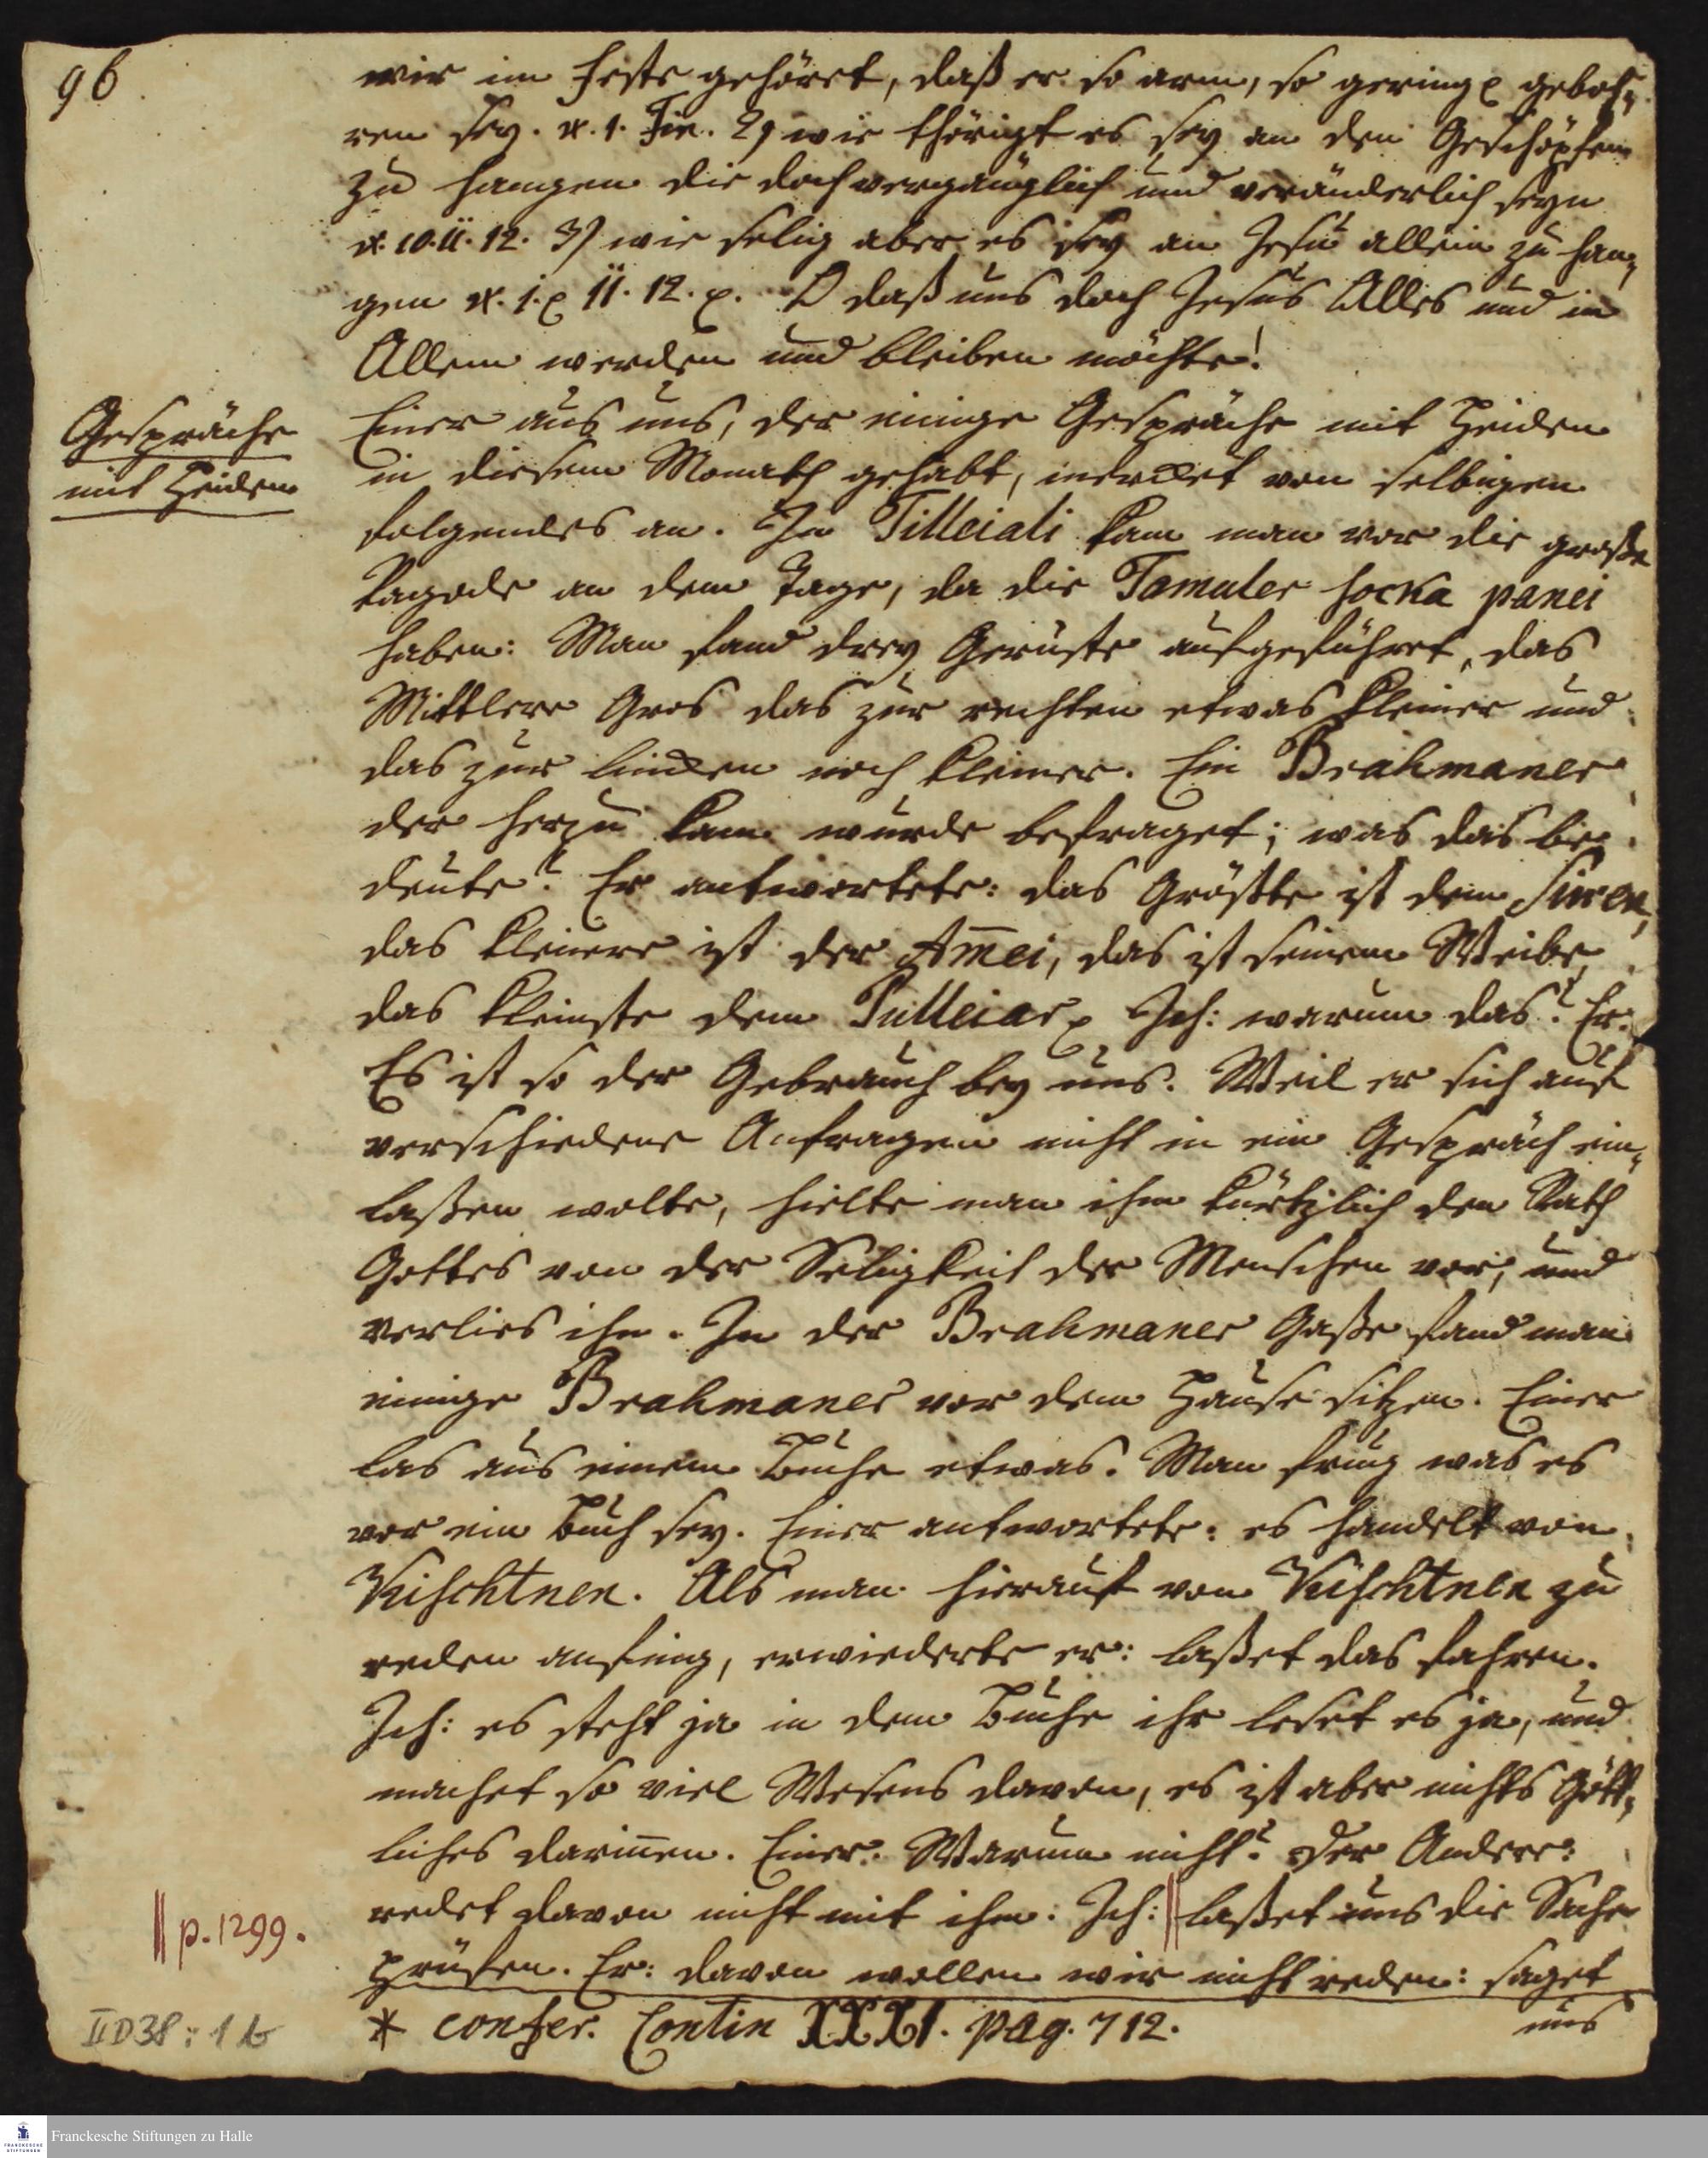 96
wir im Feste gehöret, daß er so arm, so gering geboh-
ren sey. v. 1. 2) wie thörigt es sey an den Geschöpfen
zu hangen die doch vergänglich und veränderlich seyn
v. 10. 11. 12. 3) wie selig aber es sey an Jesu allein zu han-
gen v. 1. 11. 12. O daß uns doch Jesus Alles und in
Allem werden und bleiben möchte!
Gespräche
mit Heiden
Einer aus uns, der einige Gespräche mit Heiden
in diesem Monath gehabt, mercket von selbigen
folgendes an. In Tilleiali kam man vor die große
Pagode an dem Tage, da die Tamuler Socka panei
haben: Man fand drey Gerüste aufgeführet, das
Mittlere Gros das zur rechten etwas kleiner und
das zur lincken noch kleiner. Ein Brahmaner
der herzu kam wurde befraget; was das be-
deute? Er antwortete: das Größte ist dem Siwen,
das kleinere ist der Am̄ei, das ist seinem Weibe,
das kleinste dem Pulleiar. Ich: warum das? Er:
Es ist so der Gebrauch bey uns. Weil er sich auf
verschiedene Anfragen nicht in ein Gespräch ein-
laßen wolte, hielte man ihm kürtzlich den Rath
Gottes von der Seligkeit der Menschen vor, und
verlies ihn. In der Brahmaner Gaße fand man
einige Brahmaner vor dem Hause sitzen. Einer
las aus einem Buche etwas. Man frug was es
vor ein Buch sey. Einer antwortete: es handelt von
Kischtnen. Als man hierauf von Kischtnen zu
reden anfing, erwiederte er: laßet das fahren.
Ich: es steht ja in dem Buche ihr leset es ja, und
machet so viel Wesens davon, es ist aber nichts Gött-
liches darin̄en. Einer: Warum nicht? Der Andere:
redet davon nicht mit ihm. Ich: || laßet uns die Sache
|| p. 1299.
prüfen. Er: davon wollen wir nicht reden: saget
* confer. Contin XXXI. pag. 712.
uns
II D 38 : 1 b
FRANCKESCHE STIFTUNGEN
Franckesche Stiftungen zu Halle